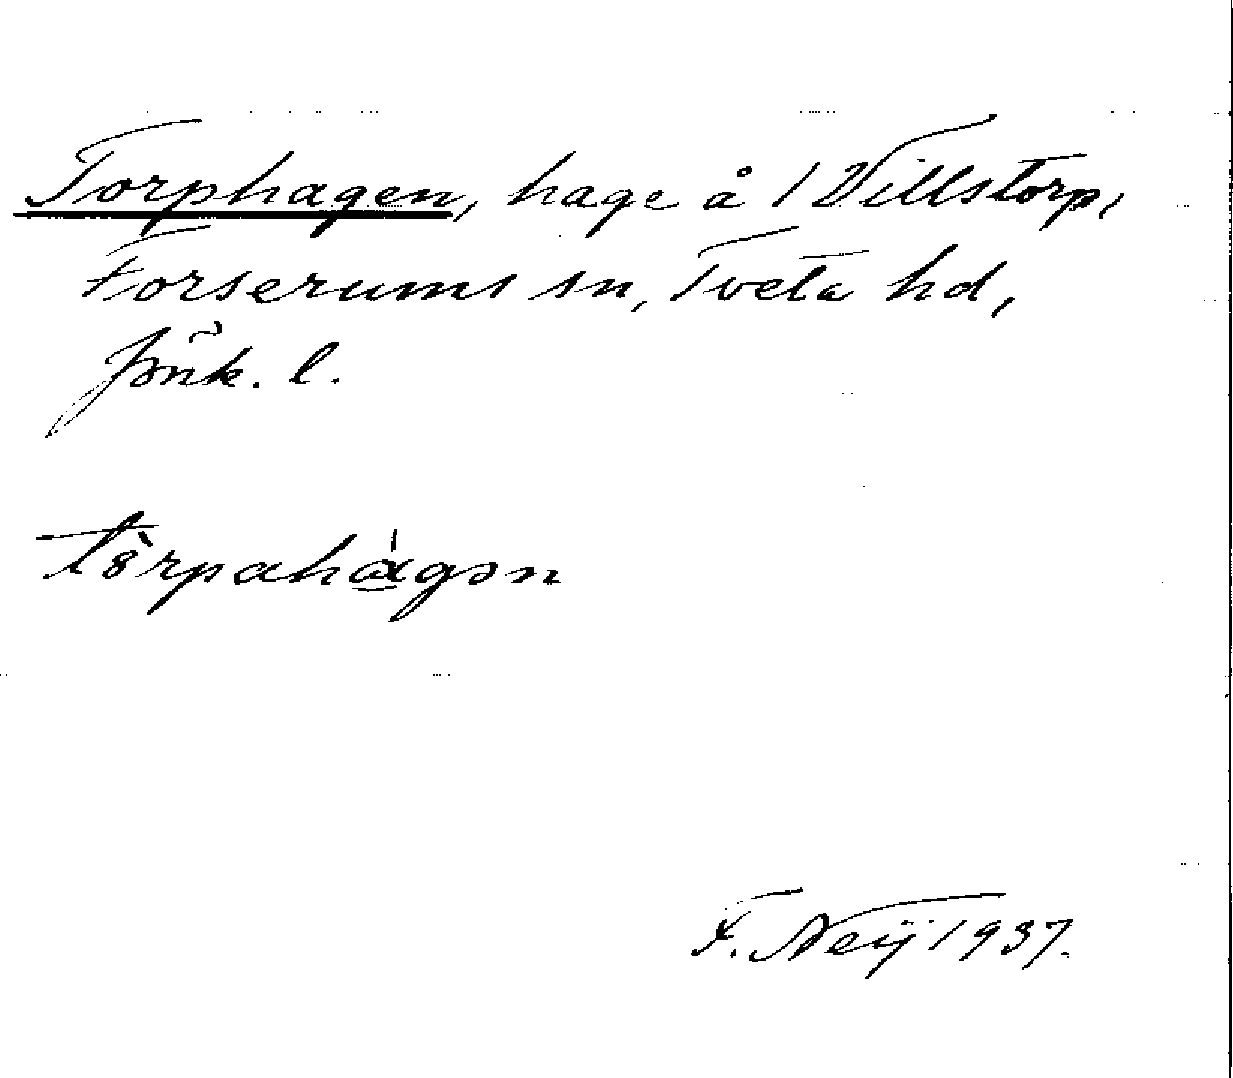 Torphagen, hage å 1 Villstorp,
Forserums sn, Tveta hd,
Jönk. l.
tȍrpahágən
F. Neij 1937.